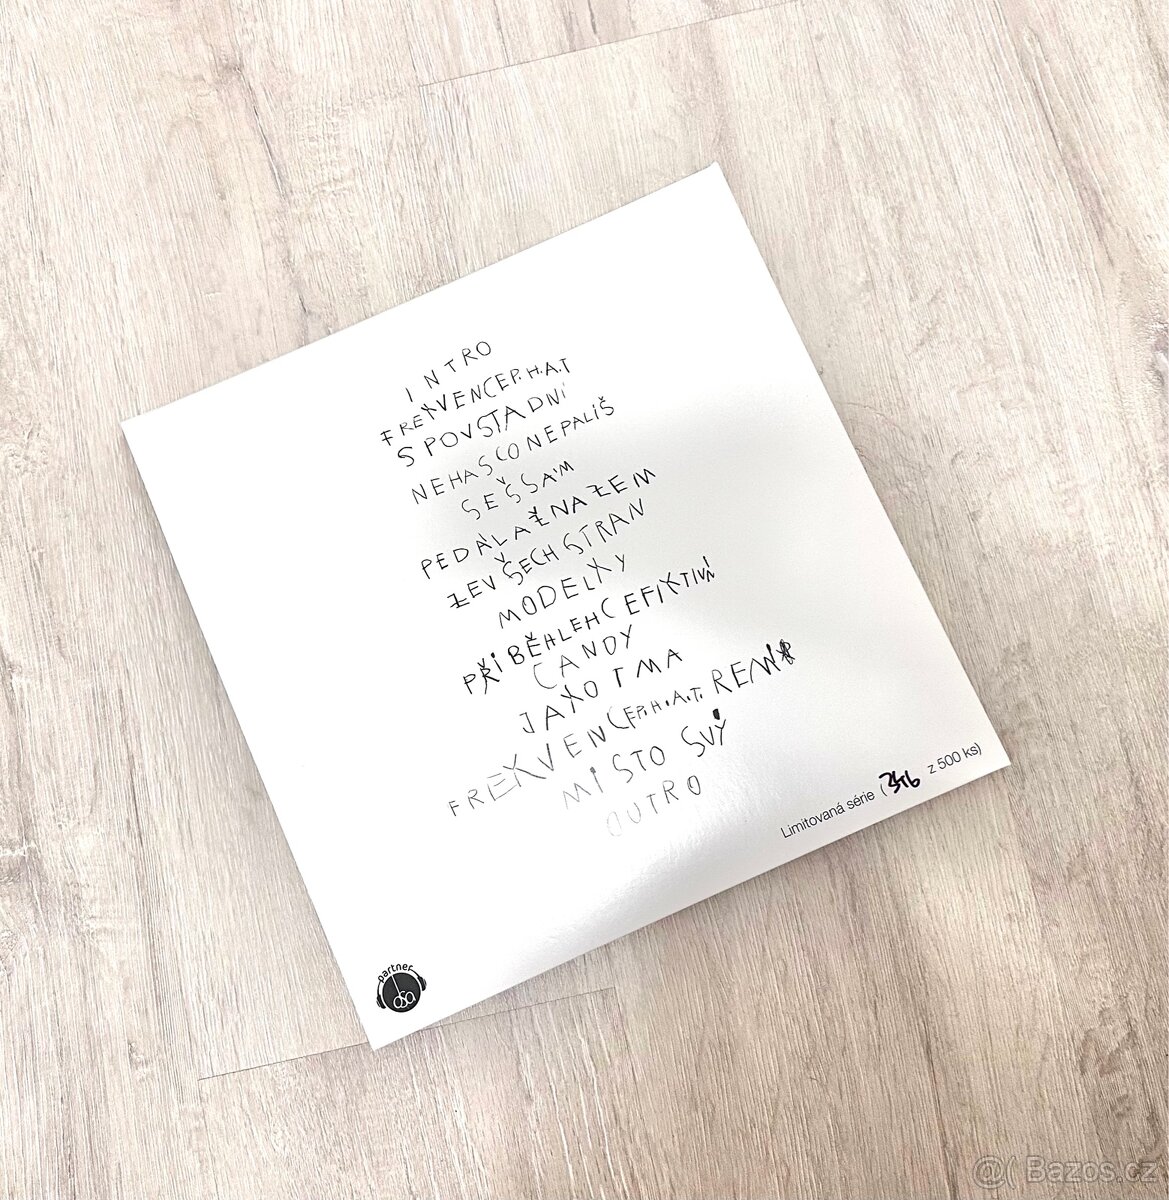 INTRO
FREKVENCEP.H.A.T
SPOVSTADNÍ
NEHASCONEPALÍŠ
SEŠSAM
PEDALAŽNAZEM
ZEVŠECHSTRAN
MODELKY
PŘIBĚHLEHCEFIKTIVNÍ
CANDY
JAKOTMA
FREKVENCEP.H.A.T. REMIX
MÍSTO SVÝ
OUTRO
Limitovaná série ( z 500 ks)
partner
osa
@( Bazos.cz